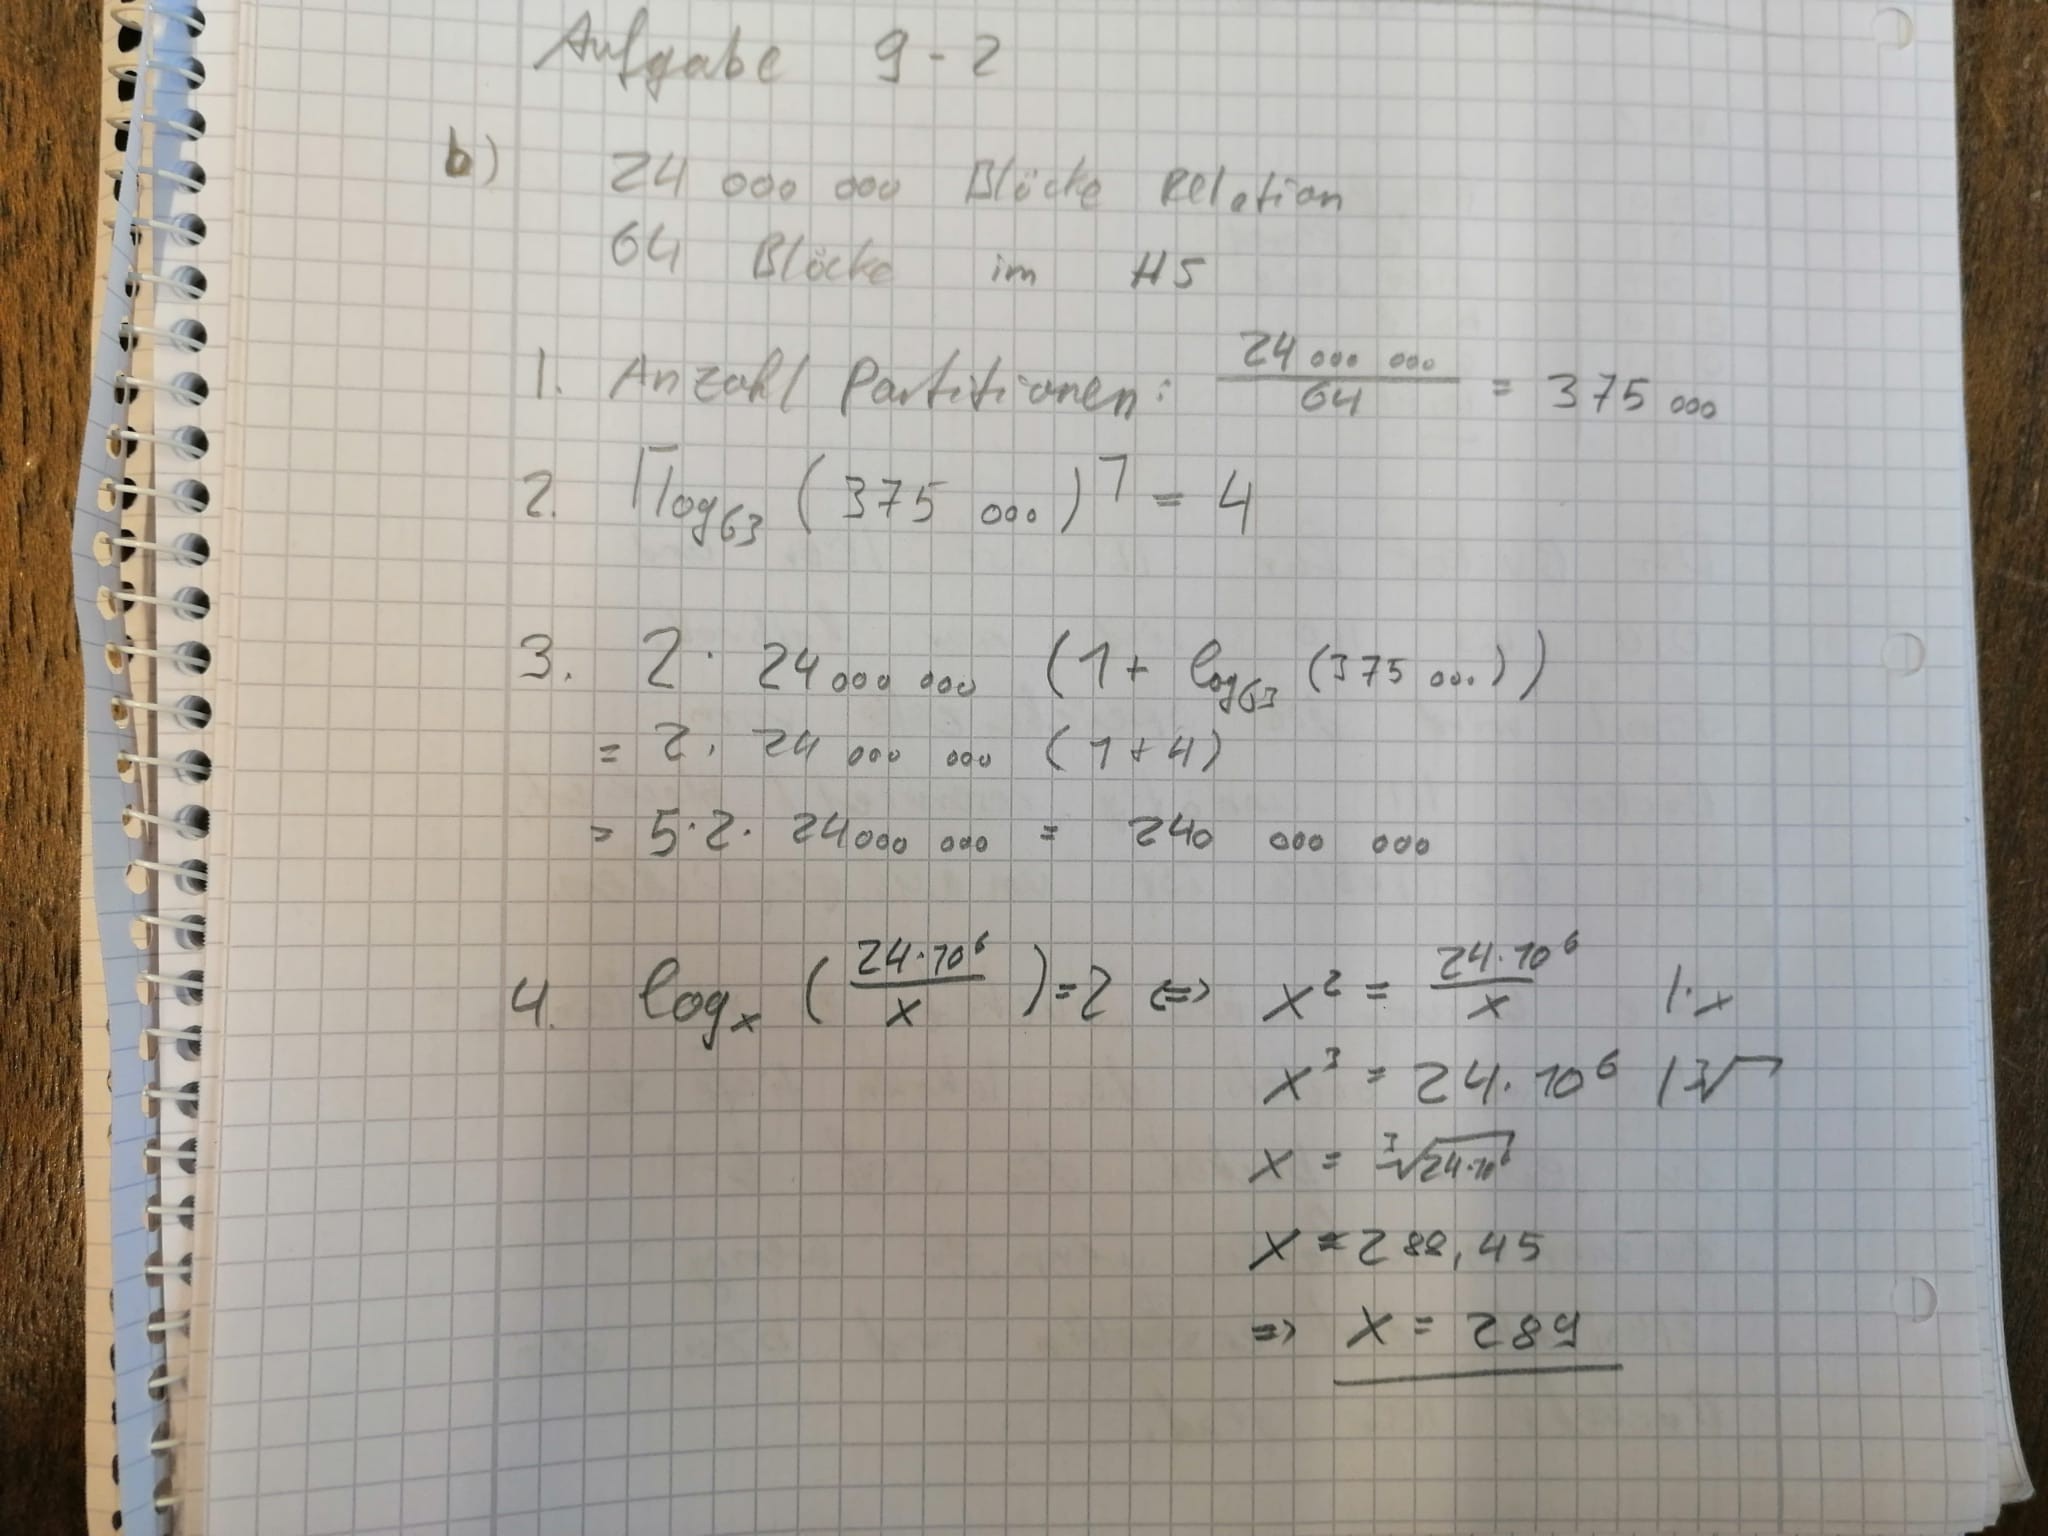 Aufgabe 9-2
b) 24 000 000 Blöcke Relation
64 Blöcke im HS
1. Anzahl Partitionen: 24 000 000 / 64 = 375 000
2. ⌈log₆₃ (375 000)⌉ = 4
3. 2 · 24 000 000 (1 + log₆₃ (375 000))
= 2 · 24 000 000 (1 + 4)
= 5 · 2 · 24 000 000 = 240 000 000
4. logₓ (24·10⁶ / x) = 2 ⇔ x² = 24·10⁶ / x |·x
x³ = 24·10⁶ |∛
x = ∛24·10⁶
x = 288,45
⇒ x = 289